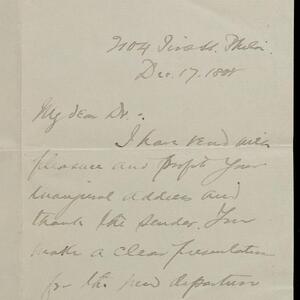 Phila.
Dec. 17. 18
My dear Dr.:
I have read with
pleasure and profit your
inaugural address and
thank the sender. You
make a clear presentation
for the new departure